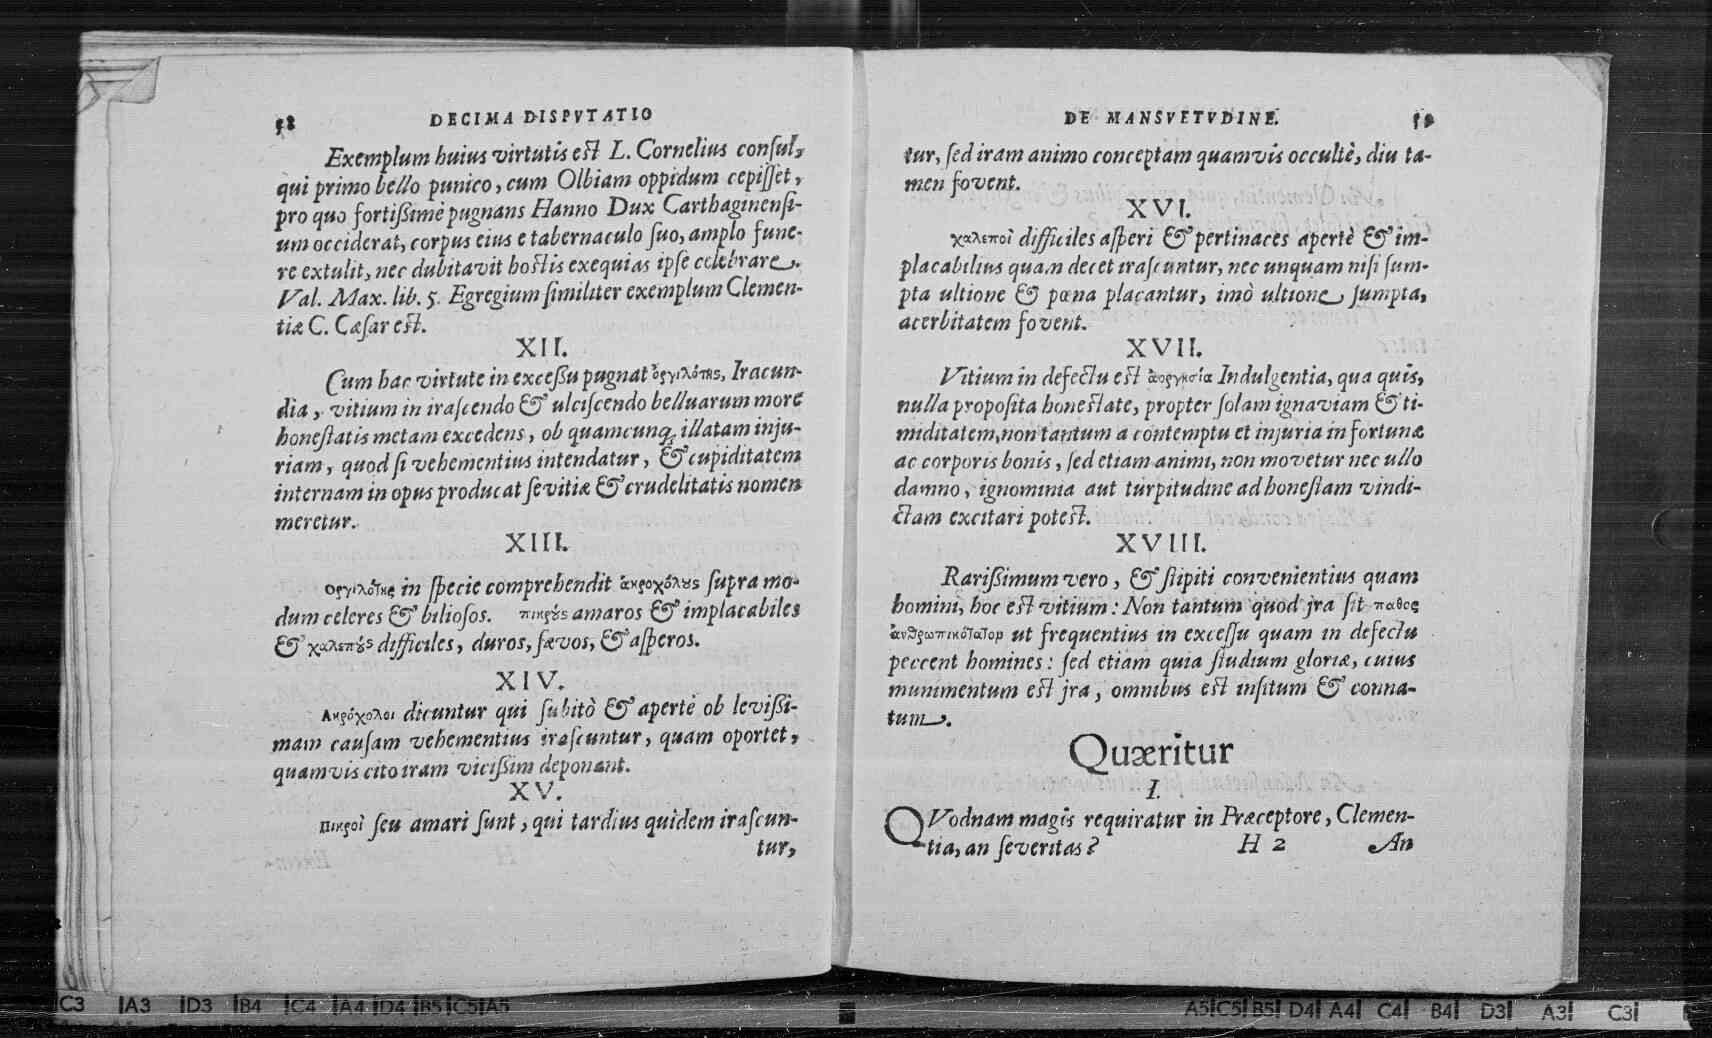 58 DECIMA DISPVTATIO
Exemplum huius virtutis est L. Cornelius consul,
qui primo bello punico, cum Olbiam oppidum cepisset,
pro quo fortißimè pugnans Hanno Dux Carthaginensi-
um occiderat, corpus eius e tabernaculo suo, amplo fune-
re extulit, nec dubitavit hostis exequias ipse celebrare.
Val. Max. lib. 5. Egregium similiter exemplum Clemen-
tiæ C. Cæsar est.
XII.
Cum hac virtute in exceßu pugnat ὀργιλότης, Iracun-
dia, vitium in irascendo & ulciscendo belluarum more
honestatis metam excedens, ob quamcunq; illatam inju-
riam, quod si vehementius intendatur, & cupiditatem
internam in opus producat sevitiæ & crudelitatis nomen
meretur.
XIII.
οργιλότης in specie comprehendit ἀκροχόλους supra mo-
dum celeres & biliosos. πικροὺς amaros & implacabiles
& χαλεποὺς difficiles, duros, sævos, & asperos.
XIV.
Ακρόχολοι dicuntur qui subitò & apertè ob levißi-
mam causam vehementius irascuntur, quam oportet,
quamvis cito iram vicißim deponant.
XV.
πικροὶ seu amari sunt, qui tardius quidem irascun-
tur,
DE MANSVETVDINE. 59
tur, sed iram animo conceptam quamvis occultè, diu ta-
men fovent.
XVI.
χαλεποὶ difficiles asperi & pertinaces apertè & im-
placabilius quam decet irascuntur, nec unquam nisi sum-
pta ultione & pœna placantur, imò ultione sumpta,
acerbitatem fovent.
XVII.
Vitium in defectu est ἀοργησία Indulgentia, qua quis,
nulla proposita honestate, propter solam ignaviam & ti-
miditatem, non tantum a contemptu et injuria in fortunæ
ac corporis bonis, sed etiam animi, non movetur nec ullo
damno, ignominia aut turpitudine ad honestam vindi-
ctam excitari potest.
XVIII.
Rarißimum vero, & stipiti convenientius quam
homini, hoc est vitium: Non tantum quod jra sit παθος
ἀνθρωπικότατον ut frequentius in excessu quam in defectu
peccent homines: sed etiam quia studium gloriæ, cuius
munimentum est jra, omnibus est insitum & conna-
tum.
Quæritur
I.
QVodnam magis requiratur in Præceptore, Clemen-
tia, an severitas?
H 2 An
C3 A3 D3 B4 C4 A4 D4 B5 C5 A5
A5 C5 B5 D4 A4 C4 B4 D3 A3 C3